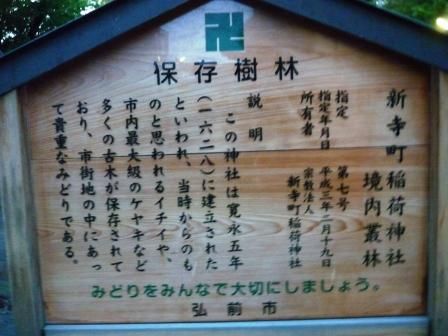 卍
保存樹林
新寺町稲荷神社
境内叢林
指定 第七号
指定年月日 平成三年二月十九日
所有者 宗教法人
新寺町稲荷神社
説明
この神社は寛永五年
(一六二八)に建立された
といわれ、当時からのも
のと思われるイチイや、
市内最大級のケヤキなど
多くの古木が保存されて
おり、市街地の中にあっ
て貴重なみどりである。
みどりをみんなで大切にしましょう。
弘前市